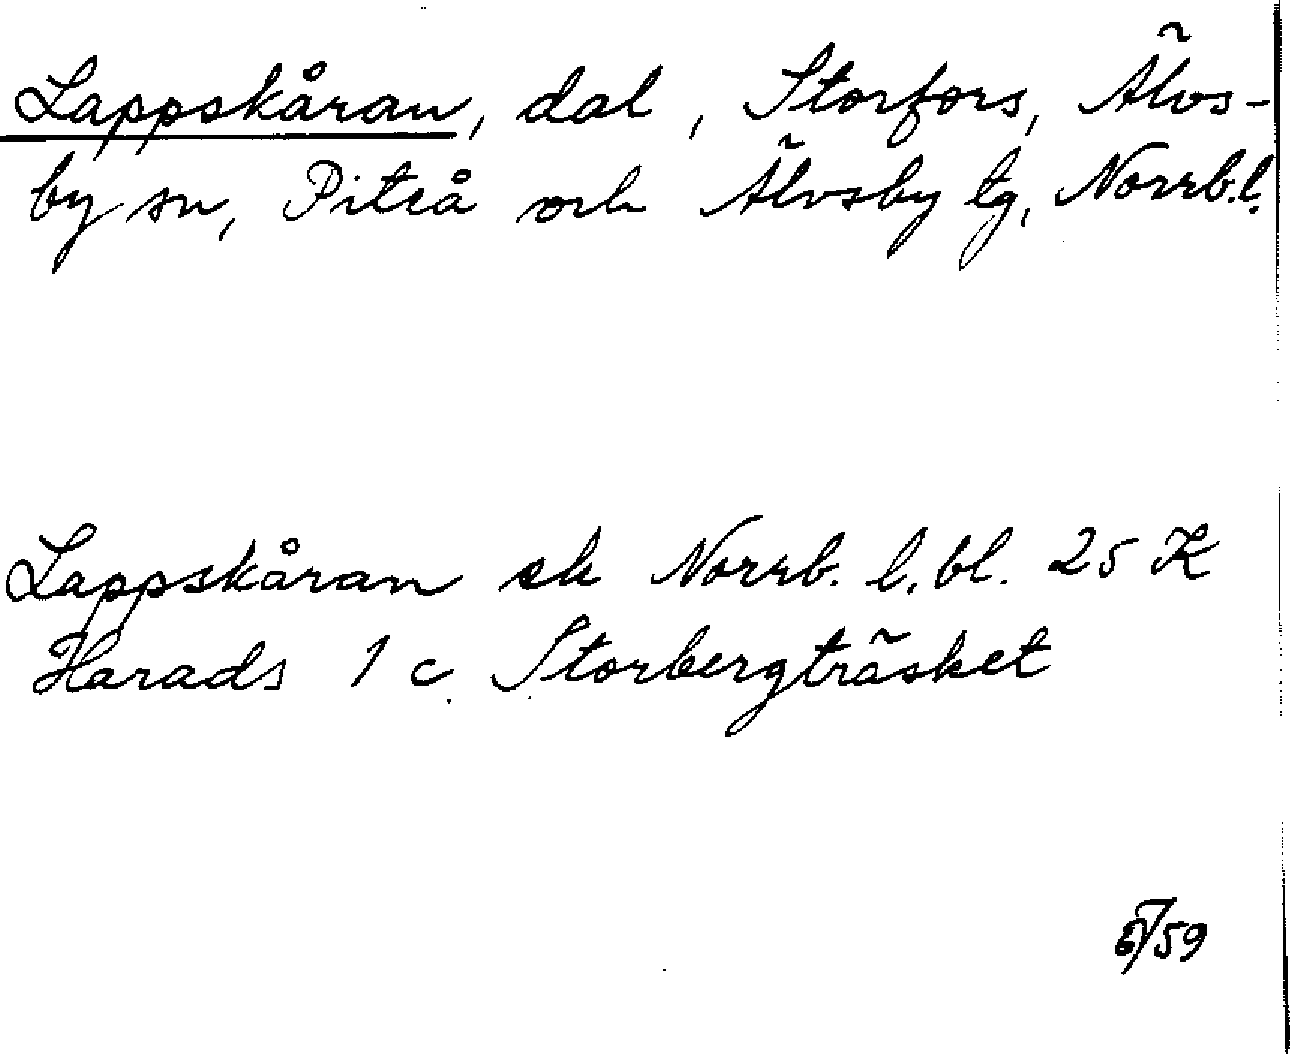 Lappskåran, dal, Storfors, Älvs-
by sn, Piteå och Älvsby tg, Norrb.l.
Lappskåran ek Norrb. l. bl. 25 K
Harads 1 c Storbergträsket
/59